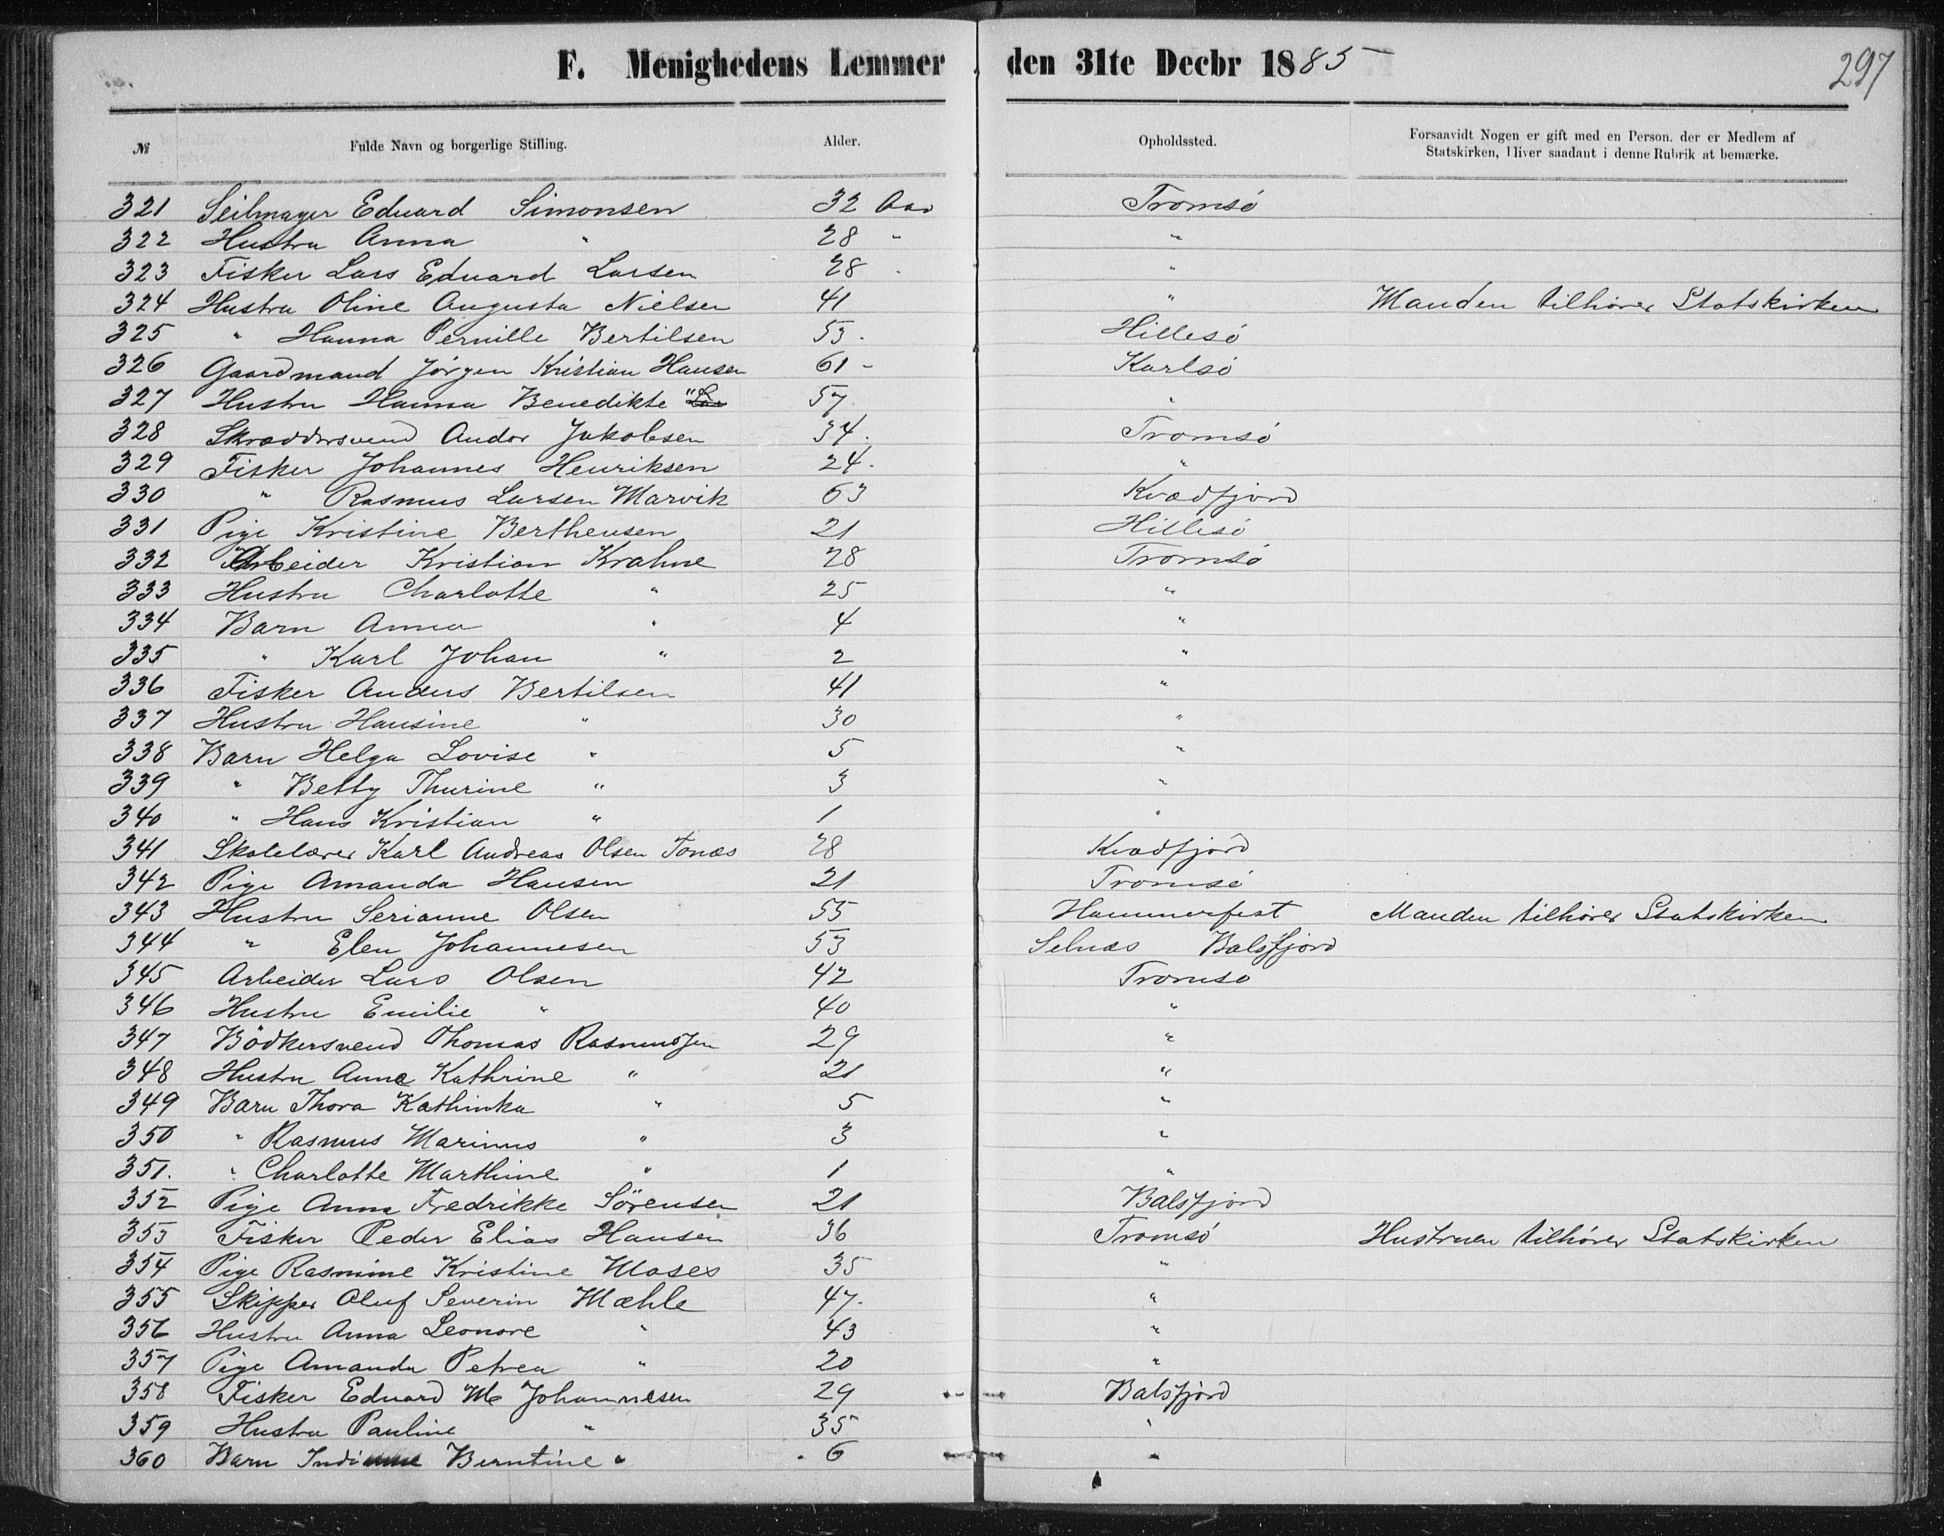 F. Menighedens Lemmer den 31te Decbr 1885 297
№ Fulde Navn og borgerlige Stilling. Alder. Opholdssted. Forsaavidt Nogen er gift med en Person, der er Medlem af Statskirken, bliver saadant i denne Rubrik at bemærke.
321 Seilmager Eduard Simonsen 32 Aar Tromsö
322 Hustru Anna " 28 " "
323 Fisker Lars Eduard Larsen 28 "
324 Hustru Oline Augusta Nielsen 41 " Manden tilhører Statskirken
325 " Hanna Pernille Bertilsen 53. Hillesö
326 Gaardmand Jørgen Kristian Hansen 61 - Karlsö
327 Hustru Hanna Benedikte " 57 "
328 Skræddersvend Andor Jakobsen 34. Tromsö
329 Fisker Johannes Henriksen 24. "
330 " Rasmus Larsen Marvik 63 Kvædfjord
331 Pige Kristine Bertheusen 21 Hillesö
332 Arbeider Kristian Krahne 28 Tromsö
333 Hustru Charlotte " 25 "
334 Barn Anna " 4 "
335 " Karl Johan " 2 "
336 Fisker Anders Bertilsen 41 "
337 Hustru Hansine " 30 "
338 Barn Helga Lovise " 5 "
339 " Betty Thurine " 3 "
340 " Hans Kristian " 1 "
341 Skolelærer Karl Andreas Olsen Tonæs 28 Kvædfjord
342 Pige Amanda Hansen 21 Tromsö
343 Hustru Serianne Olsen 55 Hammerfest Manden tilhører Statskirken
344 " Elen Johannesen 53 Selnæs Balsfjord
345 Arbeider Lars Olsen 42 Tromsö
346 Hustru Emilie " 40 "
347 Bödkersvend Thomas Rasmussen 29 "
348 Hustru Anne Kathrine " 21 "
349 Barn Thora Kathinka " 5 "
350 " Rasmus Marinus " 3 "
351. " Charlotte Marthine " 1 "
352 Pige Anna Fredrikke Sörensen 21 Balsfjord
353 Fisker Peder Elias Hansen 36 Tromsö Hustruen tilhører Statskirken
354 Pige Rasmine Kristine Moses 35 "
355 Skipper Oluf Severin Mæhle 47. "
356 Hustru Anna Leonore " 43 "
357 Pige Amanda Petrea " 20 "
358 Fisker Eduard M Johannesen 29 Balsfjord
359 Hustru Pauline " 35 "
360 Barn Berntine " 6 "